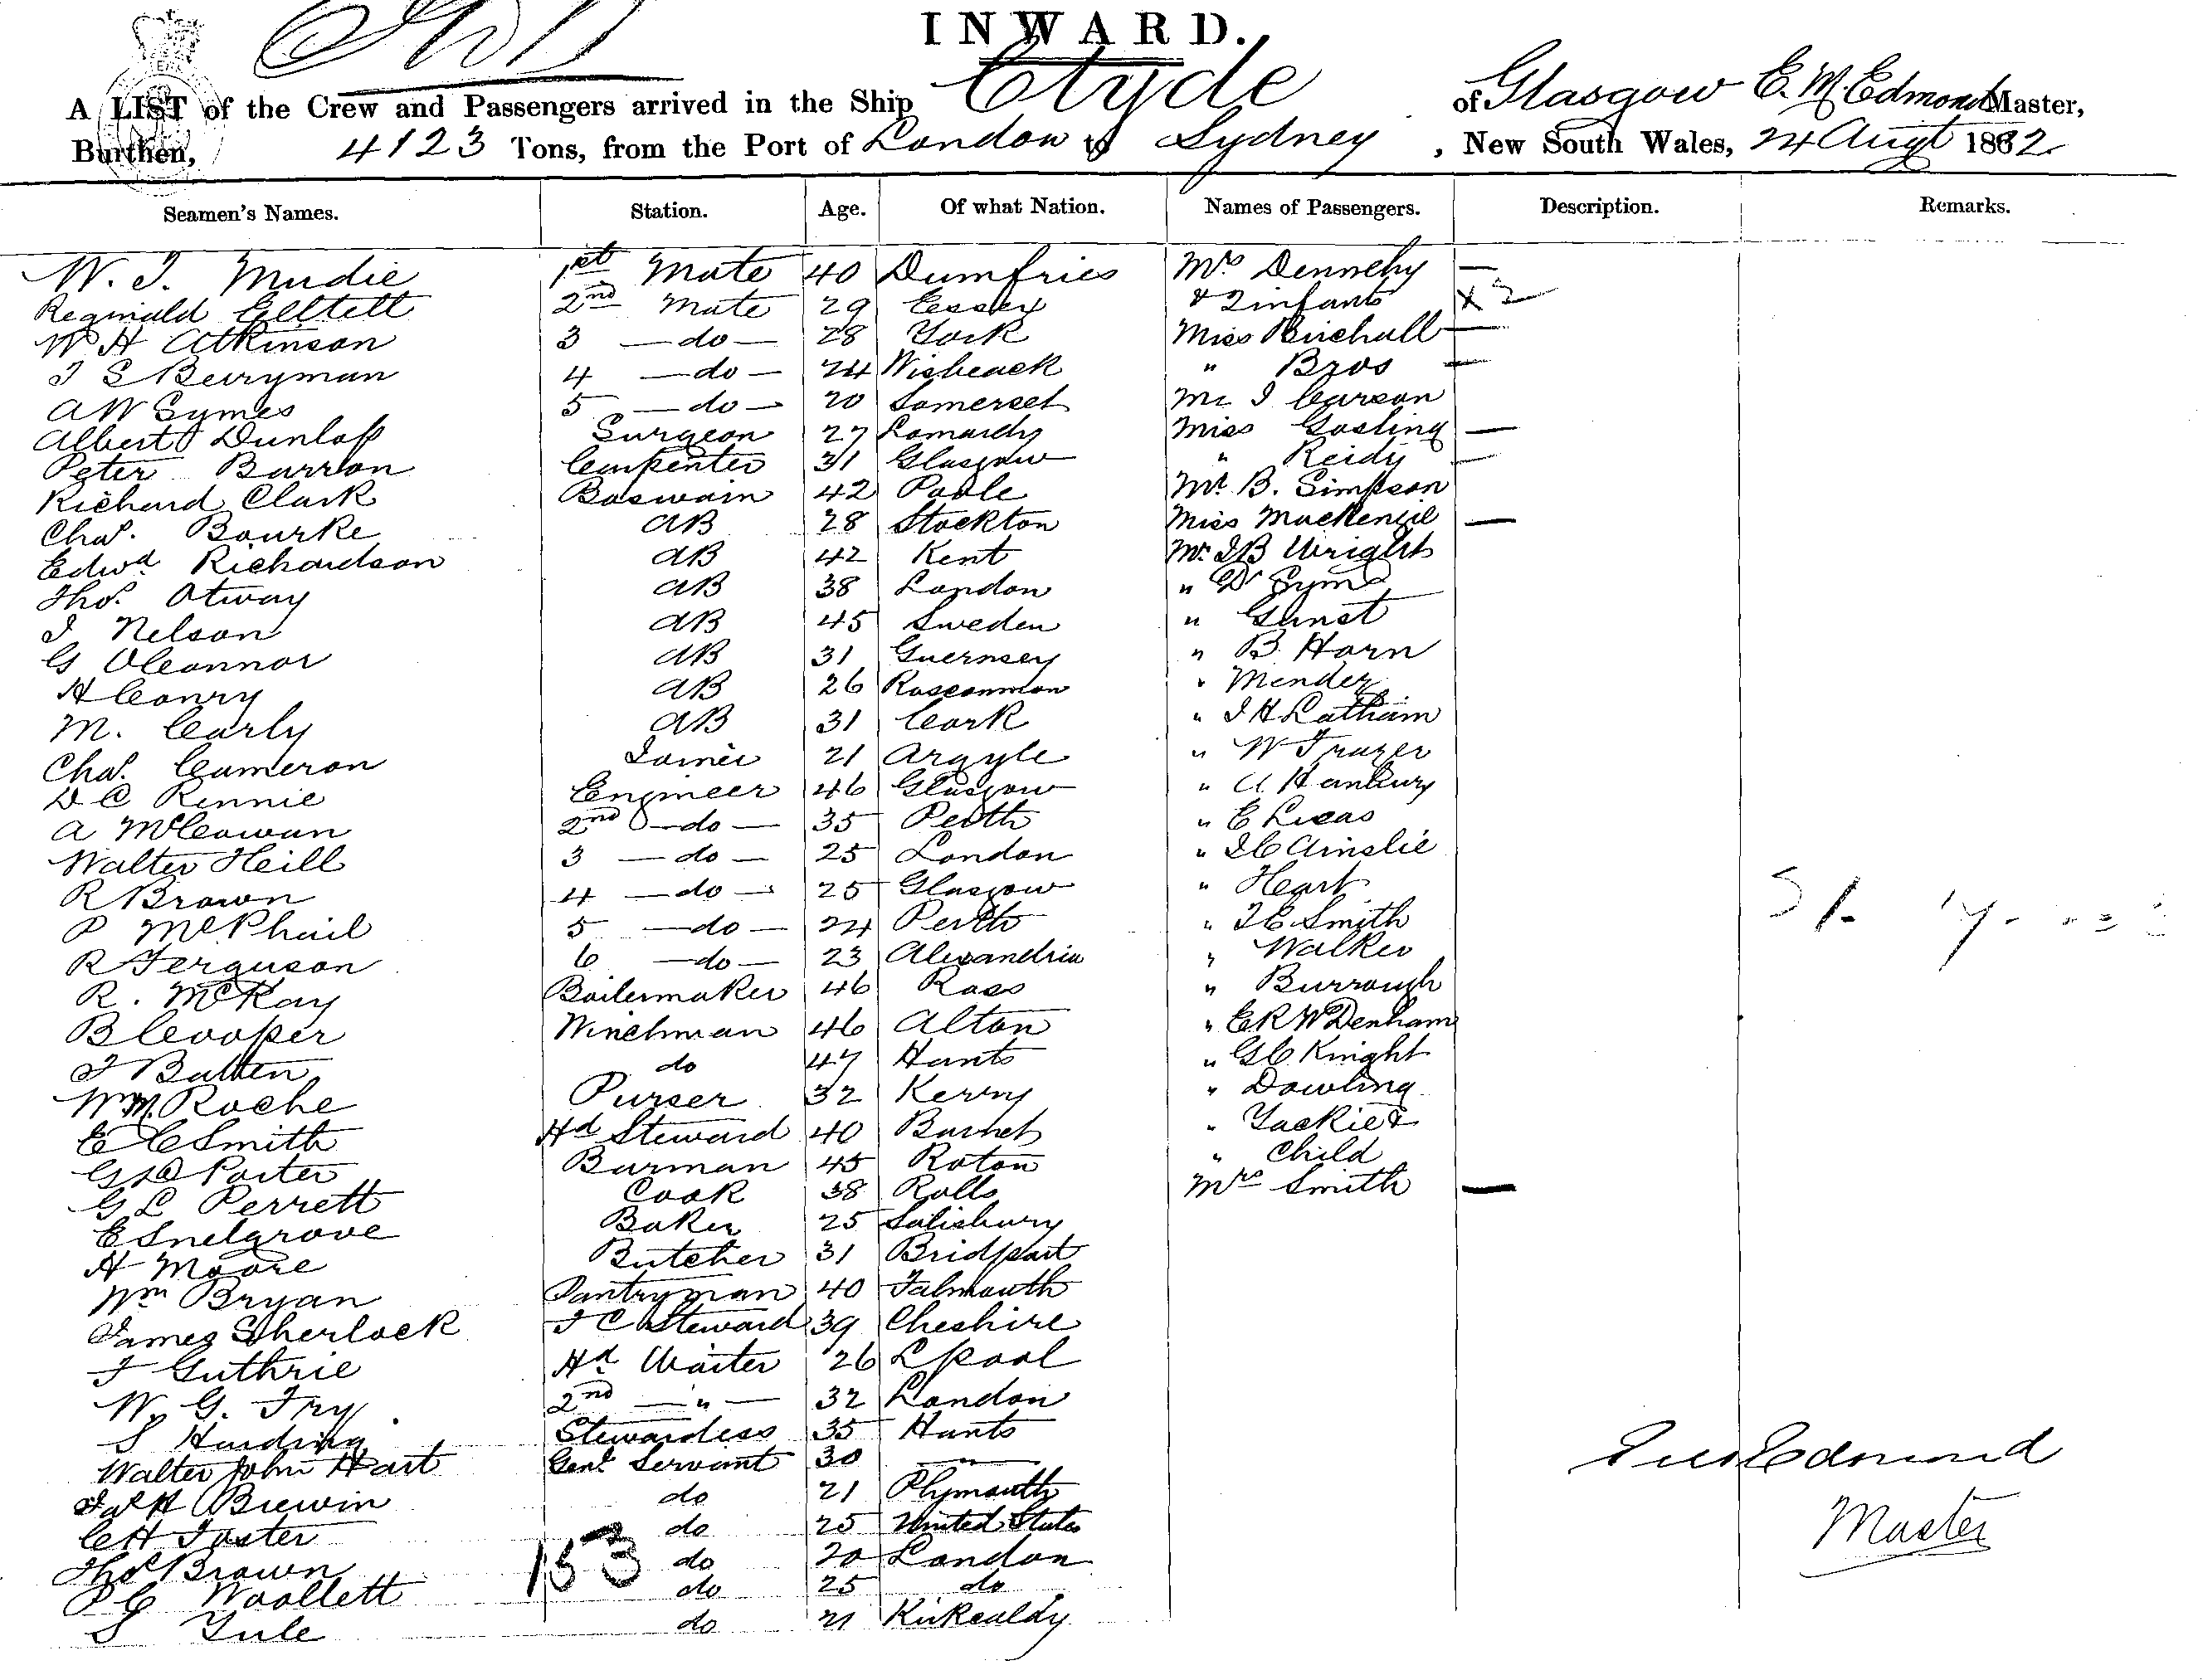 INWARD.
A LIST of the Crew and Passengers arrived in the Ship Clyde of Glasgow E. M. Edmond Master,
Burthen, 4123 Tons, from the Port of London to Sydney, New South Wales, 24 Augt 1882
Seamen's Names. Station. Age. Of what Nation. Names of Passengers. Description. Remarks.
W. J. Mudie 1st Mate 40 Dumfries Mrs Dennehy —
Reginald 2nd Mate 29 Essex & 2 infants x 2
W H Atkinson 3 — do — 28 York Miss Birchall —
J S Berryman 4 — do — 24 Wisbeack " Bros —
A W Symes 5 — do — 20 Somerset Mr J Carson
Albert Dunlop Surgeon 27 Miss Gosling —
Peter Barron Carpenter 31 Glasgow " Reidy —
Richard Clark Boswain 42 Poole Mr B. Simpson
Chas. Bourke AB 28 Stockton Miss Mackenzie —
Edwd Richardson AB 42 Kent Mr J B Wright
Thos. Otway AB 38 London " Dr Syms
J Nelson AB 45 Sweden " Gunst
G OConnor AB 31 Guernsey " B. Horn
H Conry AB 26 Roscommon " Mendez
M. Carly AB 31 Cork " J H Latham
Chas. Cameron Lamei 21 Argyle " W Frazer
D C Rennie Engineer 46 Glasgow " A. Hanbury
A McCowan 2nd — do — 35 Perth " E Lucas
Walter Heill 3 — do — 25 London " J C Ainslie
R Brown 4 — do — 25 Glasgow " Heart
P McPhail 5 — do — 24 Perth " J E Smith
R Ferguson 6 — do — 23 Alexandria " Walker
R. McKay Boilermaker 46 Ross " Burrough
B Cooper Winchman 46 Alton " E R W Denham
J Batten do 47 Hants " G C Knight
Wm. Roche Purser 32 Kerry " Dowling
E C Smith Hd Steward 40 Barnet " Jackie &
G D Porter Barman 45 Roton " Child
G L Perrett Cook 38 Rolls Mrs Smith —
E Snelgrove Baker 25 Salisbury
H Moore Butcher 31 Bridport
Wm Bryan Pantryman 40 Falmouth
James Sherlock F C Steward 39 Cheshire
J Guthrie Hd Waiter 26 Lpool
W. G. Fry 2nd — " — 32 London
S Harding Stewardess 35 Hants
Walter John Hart Genl Servant 30 — " —
Jas H Brewin do 21 Plymouth
C H Foster do 25 United States
Thos Brown do 20 London
P C Woollett do 25 do
S Yule do 21 Kirkcaldy
153
Edmond
Master